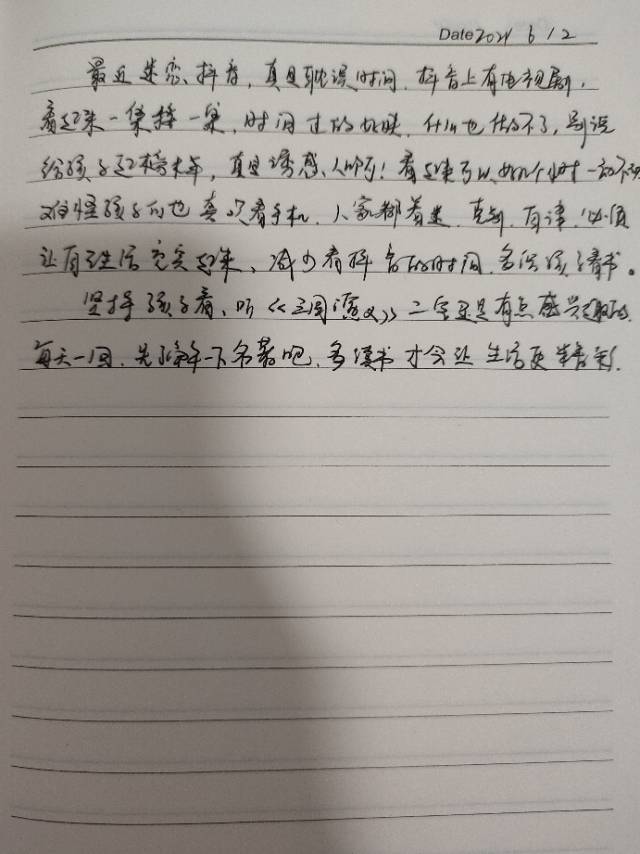 Date 2024 6 12
最近迷恋、抖音，真是耽误时间，抖音上有电视剧，
看起来一集接一集，时间过的很快，什么也做不了，别说
给孩子起榜样，真是诱感、人的了！看起来可以好几个小时一动不动
难怪孩子们也喜欢看手机，人家都着迷，克制，自律，必须
让自己生活充实起来、减少看抖音的时间，多陪孩子看书。
坚持孩子看、听《三国演义》二宝还是有点感兴趣的，
每天一回，先了解一下名著吧，多读书才会让生活更精彩。